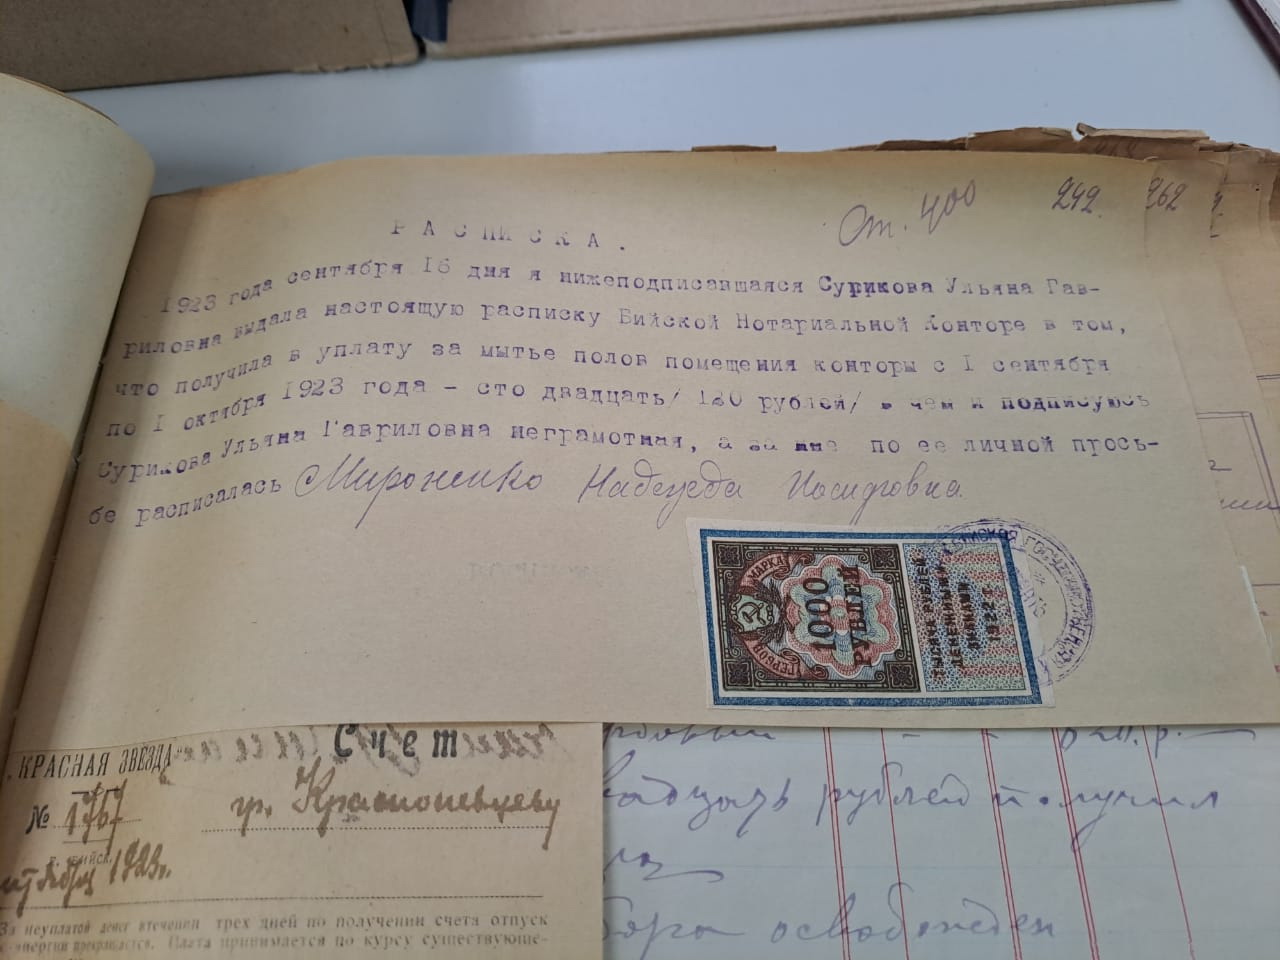 Ст. 400 242. 262
РАСПИСКА.
1923 года сентября 16 дня я нижеподписавшаяся Сурикова Ульяна Гав-
риловна выдала настоящую расписку Бийской Нотариальной Конторе в том,
что получила в уплату за мытье полов помещения конторы с I сентября
по I октября 1923 года - сто двадцать/ 120 рублей/ в чем и подписуюсь
Сурикова Ульяна Гавриловна неграмотная, а за нее по ее личной прось-
бе расписалась Мироненко Надежда
ГЕРБОВАЯ МАРКА
1000
РУБЛЕЙ
ТЫСЯЧА РУБЛЕЙ
ДЕНЕЖНЫМИ
ЗНАКАМИ
1922 г.
КРАСНАЯ ЗВЕЗДА"
Счет
№ 1767 гр.
г. Бийск.
1923г.
За неуплатой денег втечении трех дней по получении счета отпуск
энергии прекращается. Плата принимается по курсу существующе-
рублей получил
освобожден